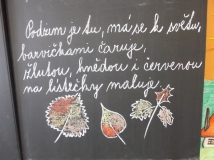 Podzim je tu, má se k světu,
barvičkami čaruje,
žlutou, hnědou i červenou
na lístečky maluje.